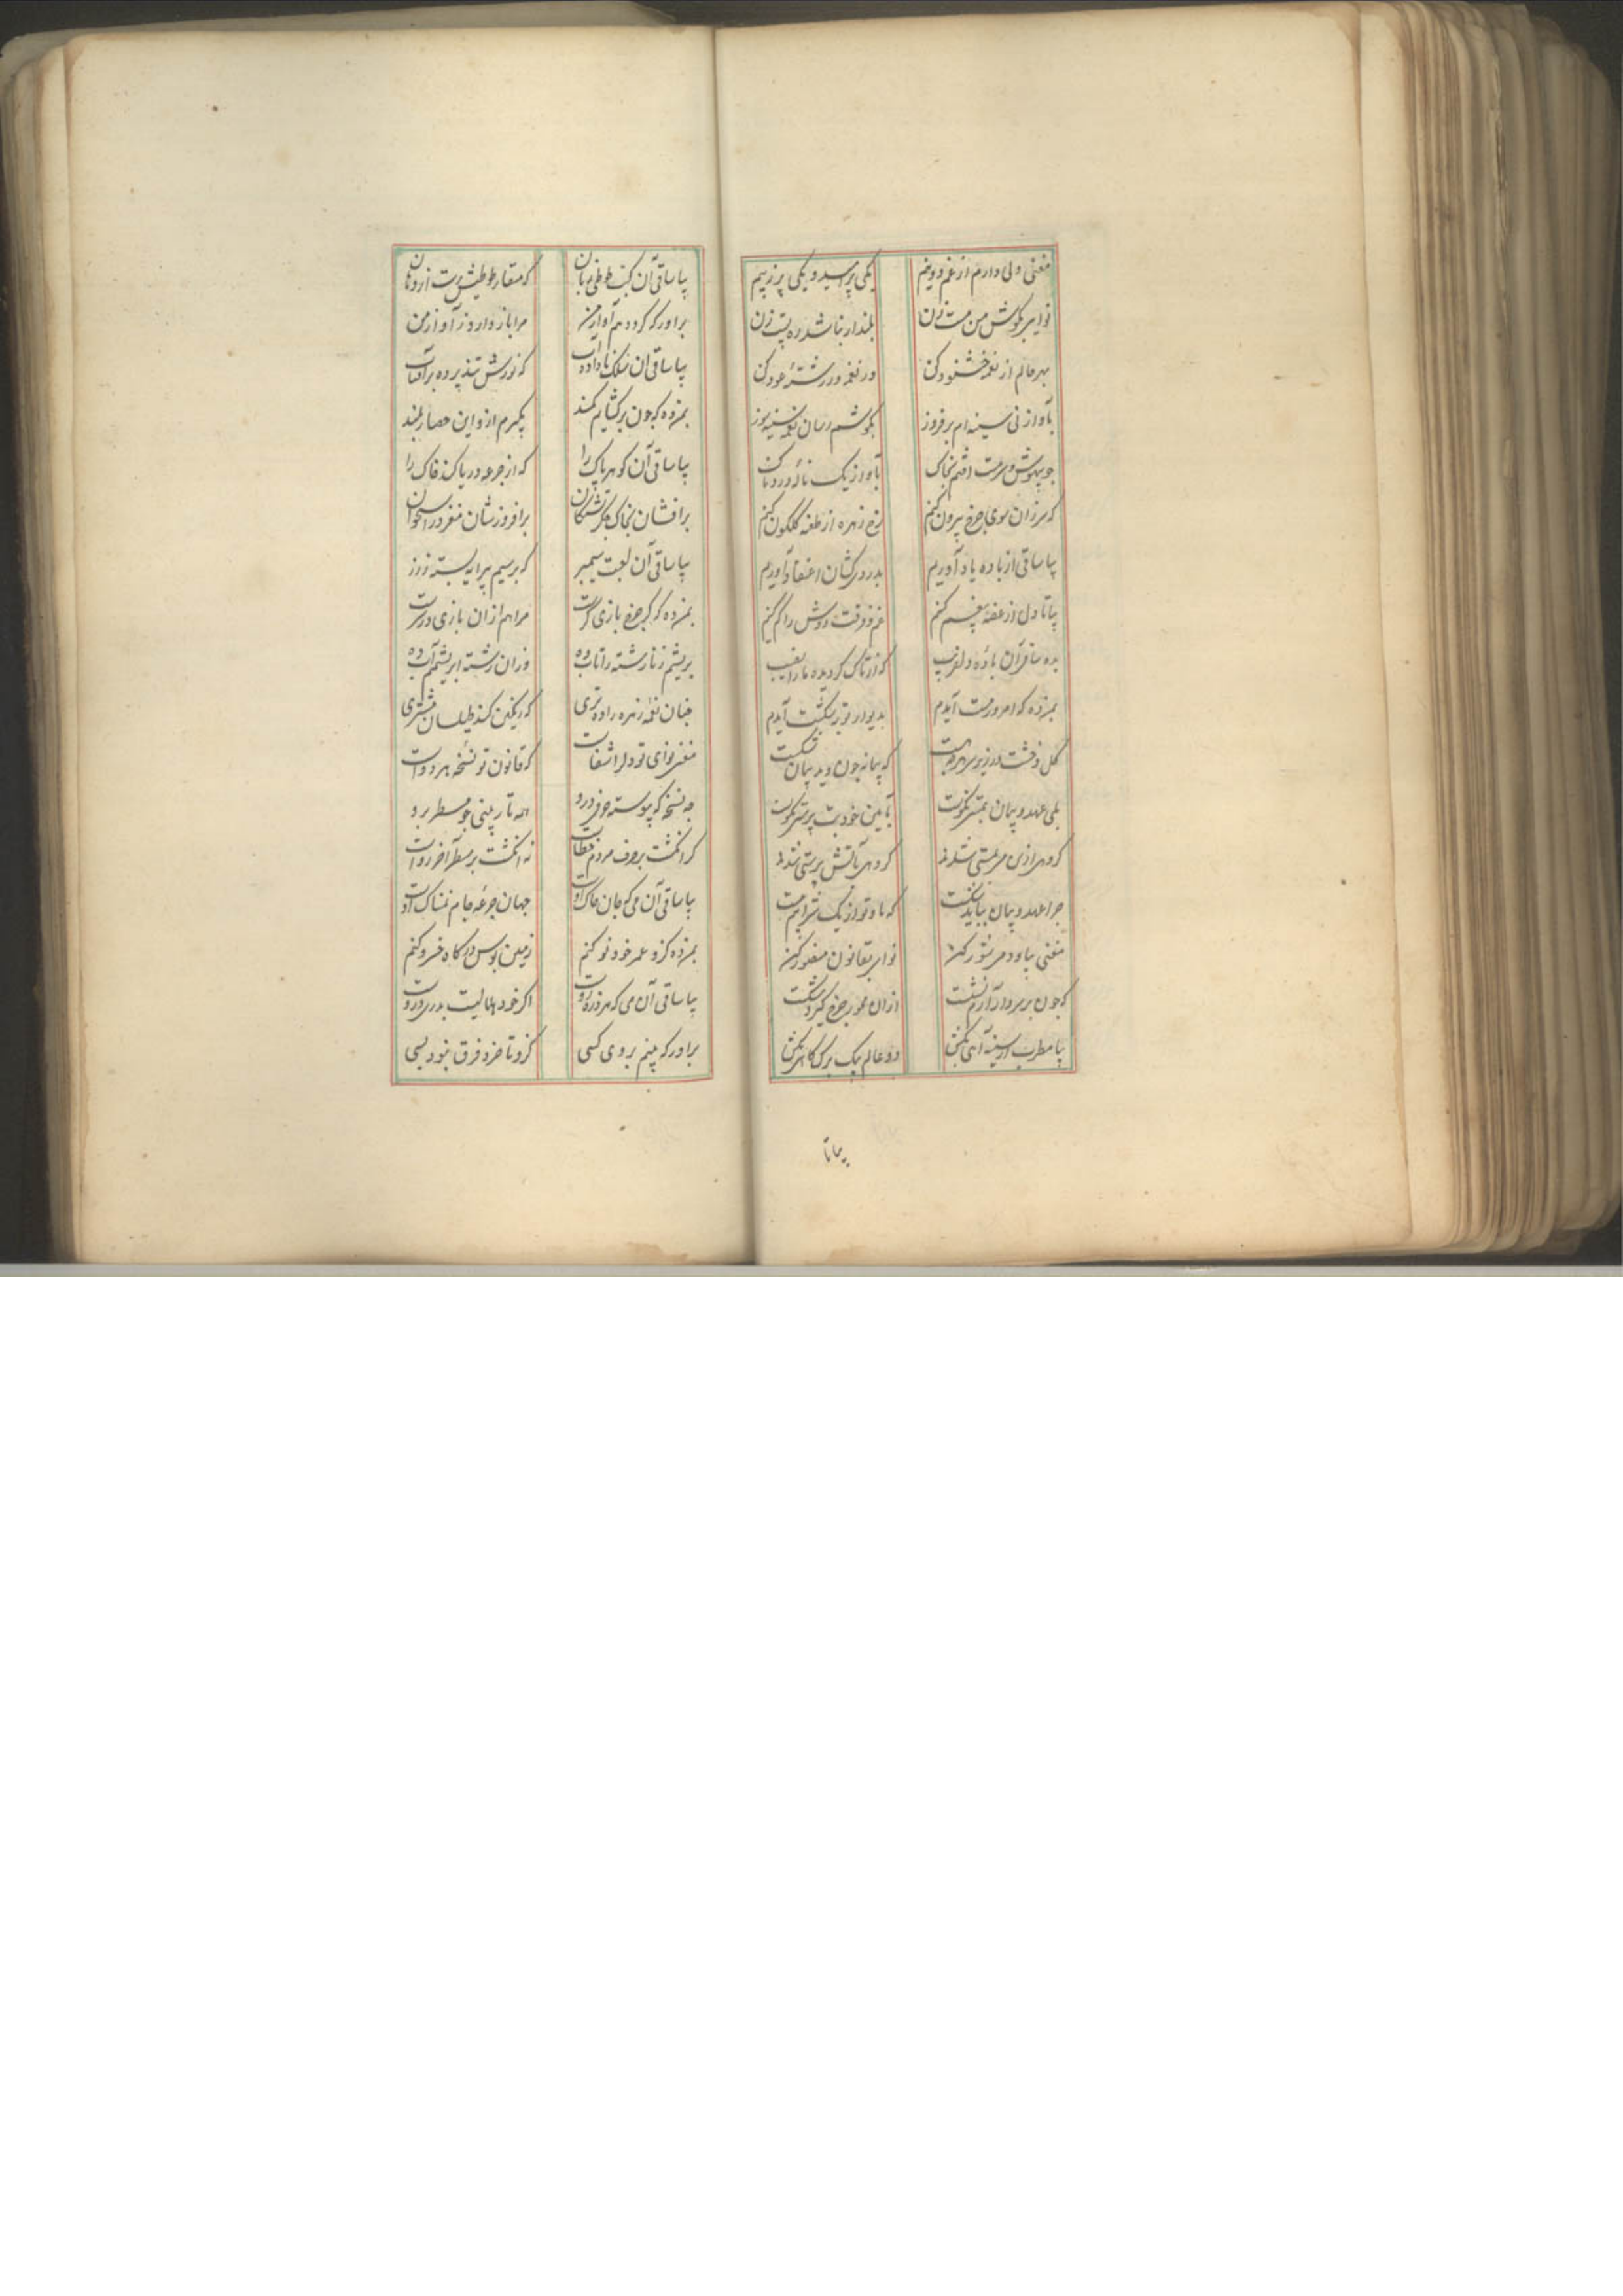 مغنی دلی دارم از غم دو نیم یکی پر امید و یکی پر ز بیم
نوایی بگوش من مست زن بلند ار نباشد ره پست زن
بهر حالم از نغمه خشنود کن در نغمه در رشتهٔ عود کن
بآواز نی سینه ام برفروز بگوشم رسان نغمه سینه سوز
چو بیهوش و سرمست افتم بخاک بآواز یک نالهٔ دردناک
که سر زان سوی چرخ بیرون کنم رخ زهره از طعنه گلگون کنم
بیا ساقی از باده یاد آوریم بدردی کشان اعتقاد آوریم
بیا تا دل از غصه بیغم کنیم غم فرقت دوش را کم کنیم
بده ساقی آن بادهٔ دلفریب که از تاک گردیده ما را نصیب
بمن ده که امروز مست آیدم بدیوار توبه شکست آیدم
گل و خشت که پیمانه چون دید پیمان شکست
بلی عهد و پیمان بآیین خود بت پرستی نکوست
گروهی ازین می بمستی شدند گروهی بآتش پرستی شدند
چرا عهد و پیمان بباید شکست که ما و تو از یک شرابیم مست
مغنی بیا و دمی شور کن نوایی بقانون منصور کن
که چون بر سر دار آرم نشست ازان محور چرخ گیرد شکست
بیا مطرب از سینه آهی بکش دو عالم بیک برگ کاهی بکش
بیا تا
بیا ساقی آن کبک طوطی زبان که منقار طوطیش رست از دهان
براور که گردد هم آواز من مرا باز دارد ز آواز من
بیا ساقی آن که نورش تند پرده بر آفتاب
بمن ده که چون برکشایم کمند بگیرم ازو این حصار بلند
بیا ساقی آن گوهر پاک را که از جرعه دریا کند خاک را
برافشان بخاک جگر تشنگان برافروزشان مغز در استخوان
بیا ساقی آن لعبت سیمبر که بر سیم پیرایه بسته ز زر
بمن ده که گر چرخ بازی گرست مرا هم ازان بازی درسرست
بریشم زنا رشته را تاب ده وزان رشته ابریشم آب ده
چنان نغمه زهره را ده تری که رنگین کند طیلسان مشتری
مغنی نوای تو دلرا شفاست که قانون تو نسخه هر دواست
چه نسخه که پیوسته حرف درو همه تار بینی چو مسطر برو
گر انگشت بر حرف مردم خطاست نه انگشت بر مسطر آخر رواست
بیا ساقی آن می که جان خاک اوست جهان جرعهٔ جام نمناک اوست
بمن ده کزو عمر خود نو کنم زمین بوس درگاه خسرو کنم
بیا ساقی آن می که
براور که بینم بروی کسی کزو تا خرد فرق نبود بسی